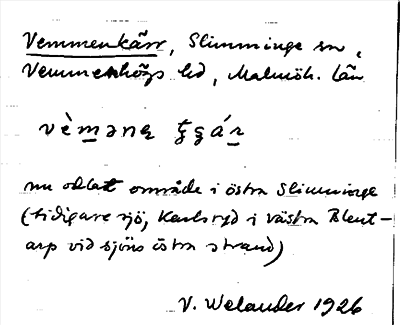 Vemmenkärr, Slimminge sn,
Vemmenhögs hd, Malmöh. län
vèmənę
nu odlat område i östra Slimminge
(tidigare sjö, Karlsryd i västra Blent-
arp vid sjöns östra strand)
V. Welander 1926